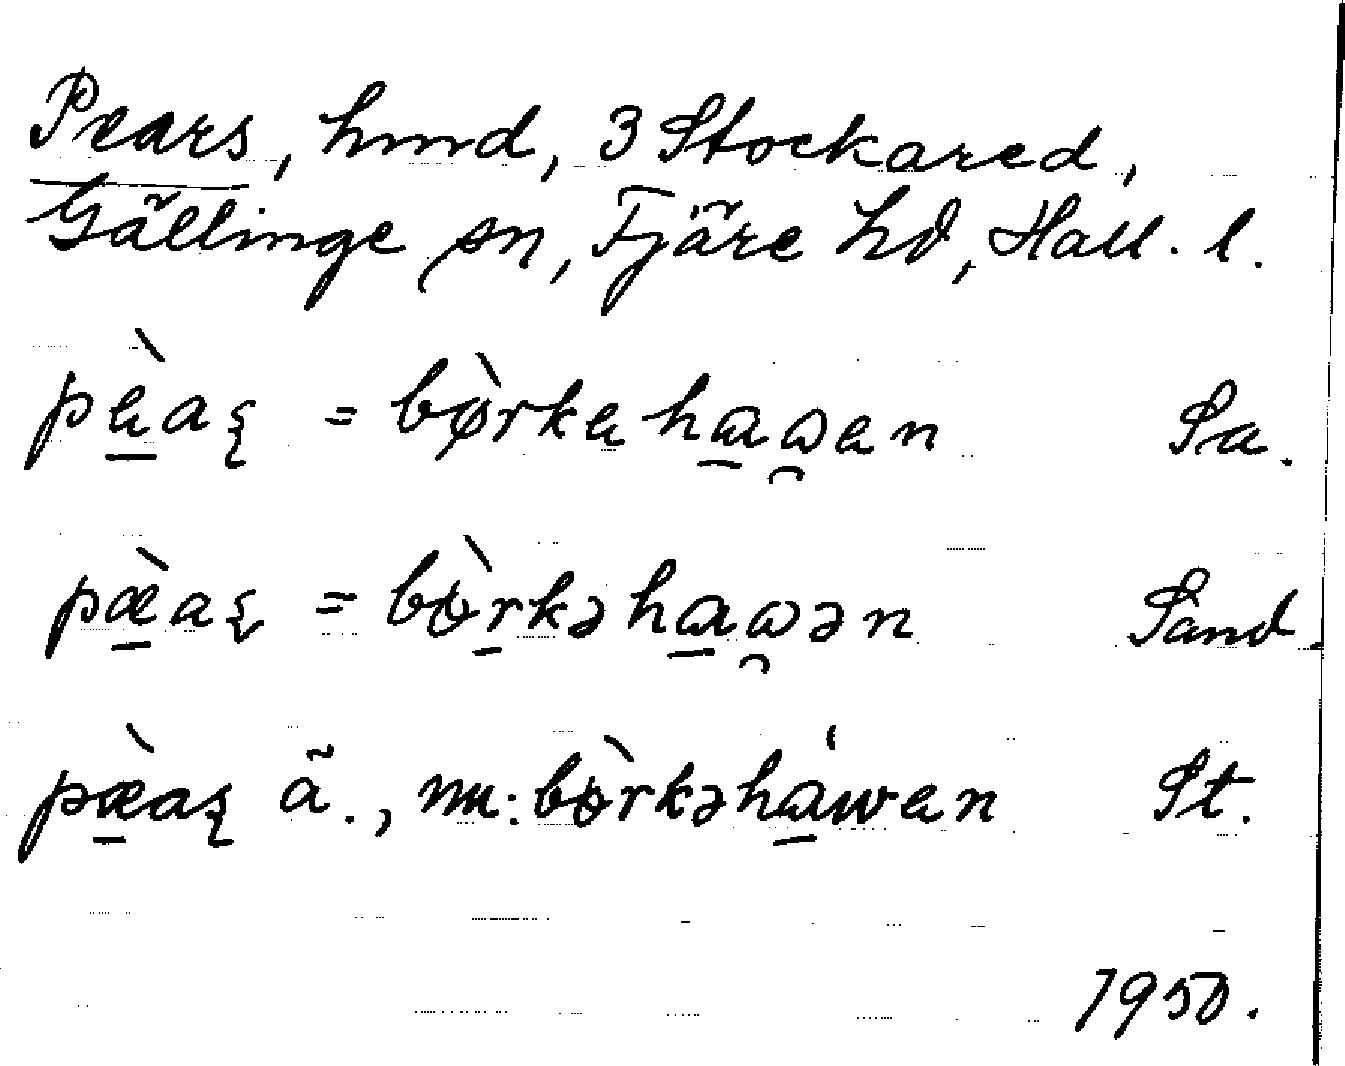 Pears, hmd, 3 Stockared,
Gällinge sn, Fjäre hd, Hall. l.
pæ̀aș = bø̀rkehaɷen Sa.
pæ̀aș = bɵ̀rkəhaɷən Sand.
pæ̀aș ä., nu: bɵ̀rkəháwen St.
1950.